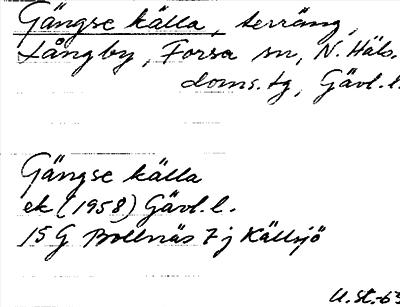 Gängse källa, terräng,
Långby, Forsa sn, N. Häls.
doms.tg, Gävl.l.
Gängse källa
ek (1958) Gävl.l.
15G Bollnäs 7j Källsjö
U.St.-63